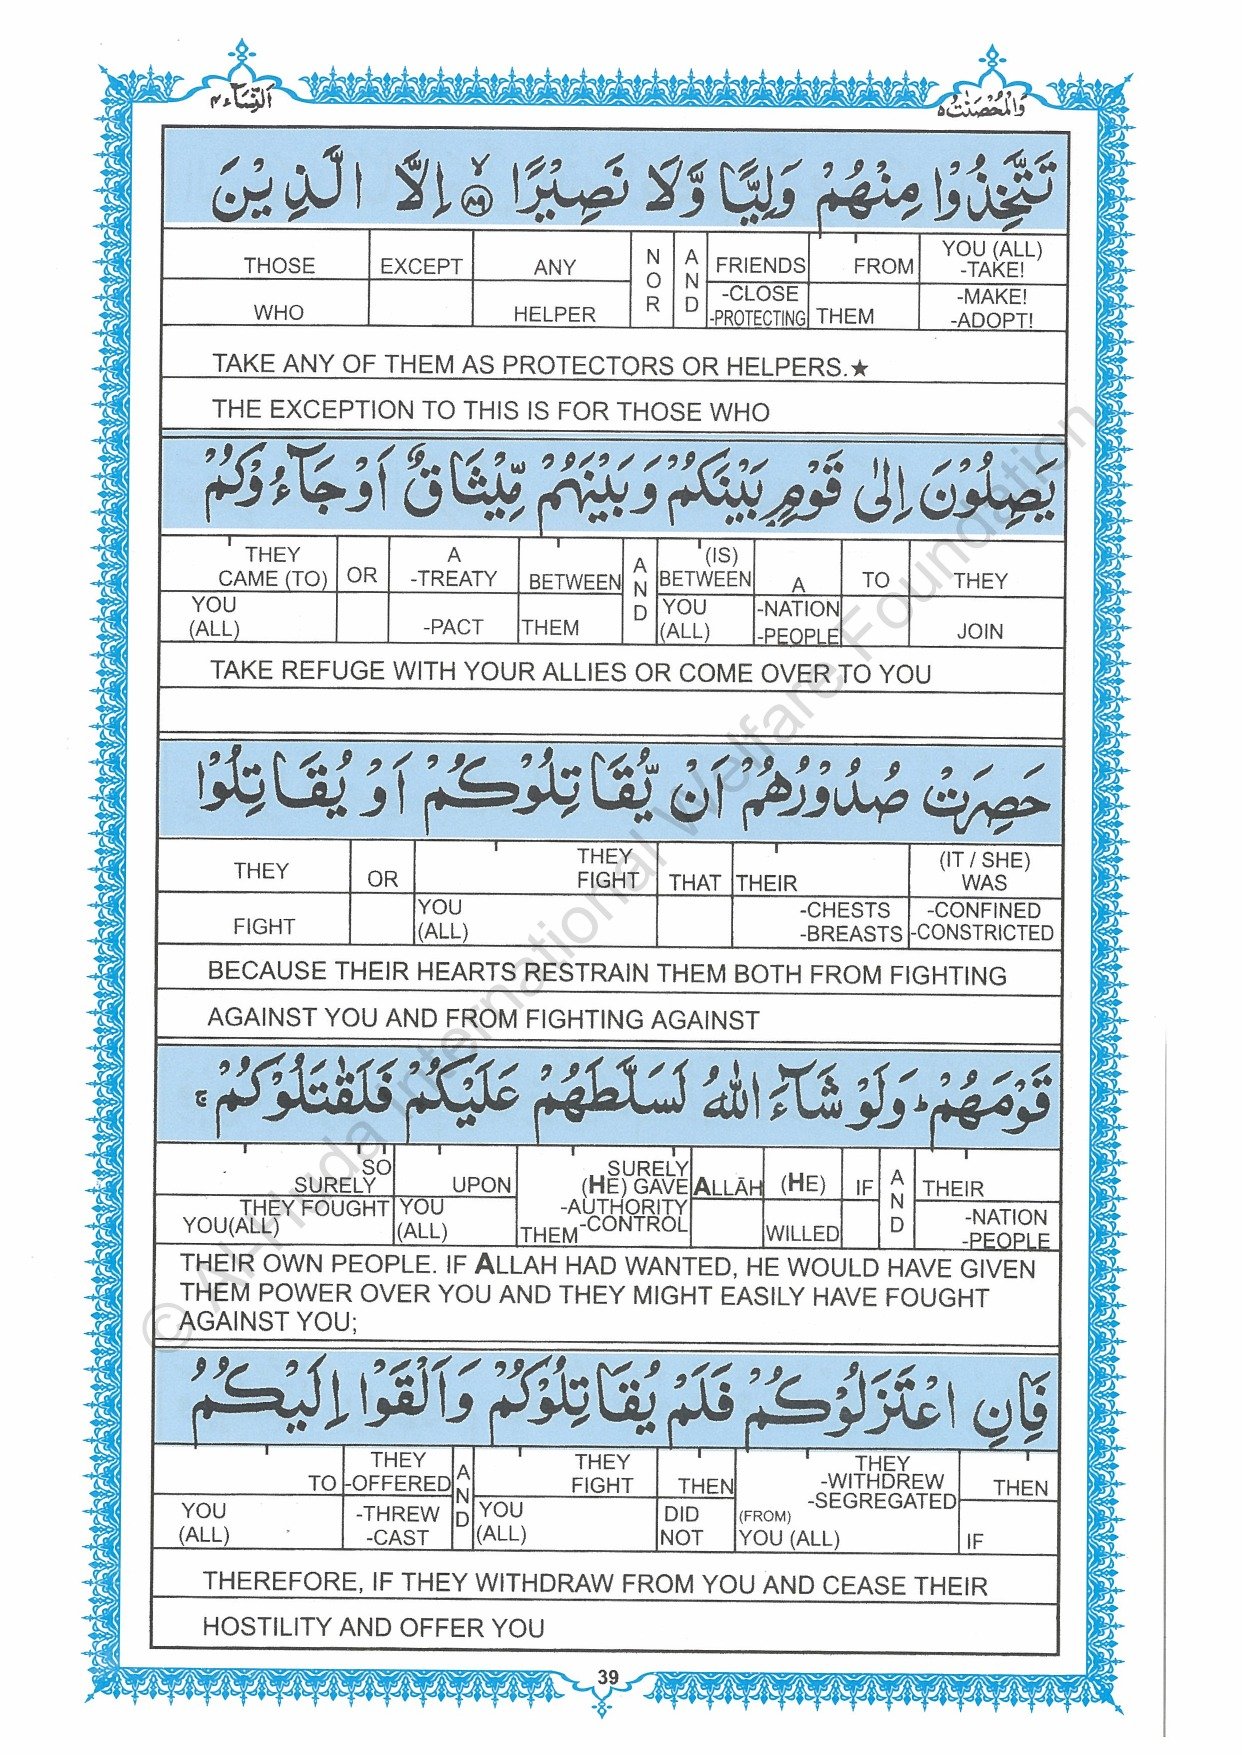 وَالْمُحْصَنٰتُ ٥
اَلنِّسَآء ٤
تَتَّخِذُوْا مِنْهُمْ وَلِيًّا وَّلَا نَصِيْرًا ۙ﴿٨٩﴾ اِلَّا الَّذِيْنَ
THOSE EXCEPT ANY NOR AND FRIENDS FROM YOU (ALL) -TAKE!
WHO HELPER -CLOSE -PROTECTING THEM -MAKE! -ADOPT!
TAKE ANY OF THEM AS PROTECTORS OR HELPERS.★
THE EXCEPTION TO THIS IS FOR THOSE WHO
يَصِلُوْنَ اِلٰى قَوْمٍۭ بَيْنَكُمْ وَبَيْنَهُمْ مِّيْثَاقٌ اَوْ جَآءُوْكُمْ
THEY CAME (TO) OR A -TREATY BETWEEN AND (IS) BETWEEN A TO THEY
YOU (ALL) -PACT THEM YOU (ALL) -NATION -PEOPLE JOIN
TAKE REFUGE WITH YOUR ALLIES OR COME OVER TO YOU
حَصِرَتْ صُدُوْرُهُمْ اَنْ يُّقَاتِلُوْكُمْ اَوْ يُقَاتِلُوْا
THEY OR THEY FIGHT THAT THEIR (IT / SHE) WAS
FIGHT YOU (ALL) -CHESTS -BREASTS -CONFINED -CONSTRICTED
BECAUSE THEIR HEARTS RESTRAIN THEM BOTH FROM FIGHTING
AGAINST YOU AND FROM FIGHTING AGAINST
قَوْمَهُمْ ؕ وَلَوْ شَآءَ اللّٰهُ لَسَلَّطَهُمْ عَلَيْكُمْ فَلَقٰتَلُوْكُمْ ۚ
SO SURELY UPON SURELY (HE) GAVE ALLĀH (HE) IF AND THEIR
THEY FOUGHT YOU(ALL) YOU (ALL) -AUTHORITY THEM -CONTROL WILLED -NATION -PEOPLE
THEIR OWN PEOPLE. IF ALLAH HAD WANTED, HE WOULD HAVE GIVEN
THEM POWER OVER YOU AND THEY MIGHT EASILY HAVE FOUGHT
AGAINST YOU;
فَاِنِ اعْتَزَلُوْكُمْ فَلَمْ يُقَاتِلُوْكُمْ وَاَلْقَوْا اِلَيْكُمُ
TO THEY -OFFERED AND THEY FIGHT THEN THEY -WITHDREW -SEGREGATED THEN
YOU (ALL) -THREW -CAST YOU (ALL) DID NOT (FROM) YOU (ALL) IF
THEREFORE, IF THEY WITHDRAW FROM YOU AND CEASE THEIR
HOSTILITY AND OFFER YOU
39
© Al-Huda International Welfare Foundation